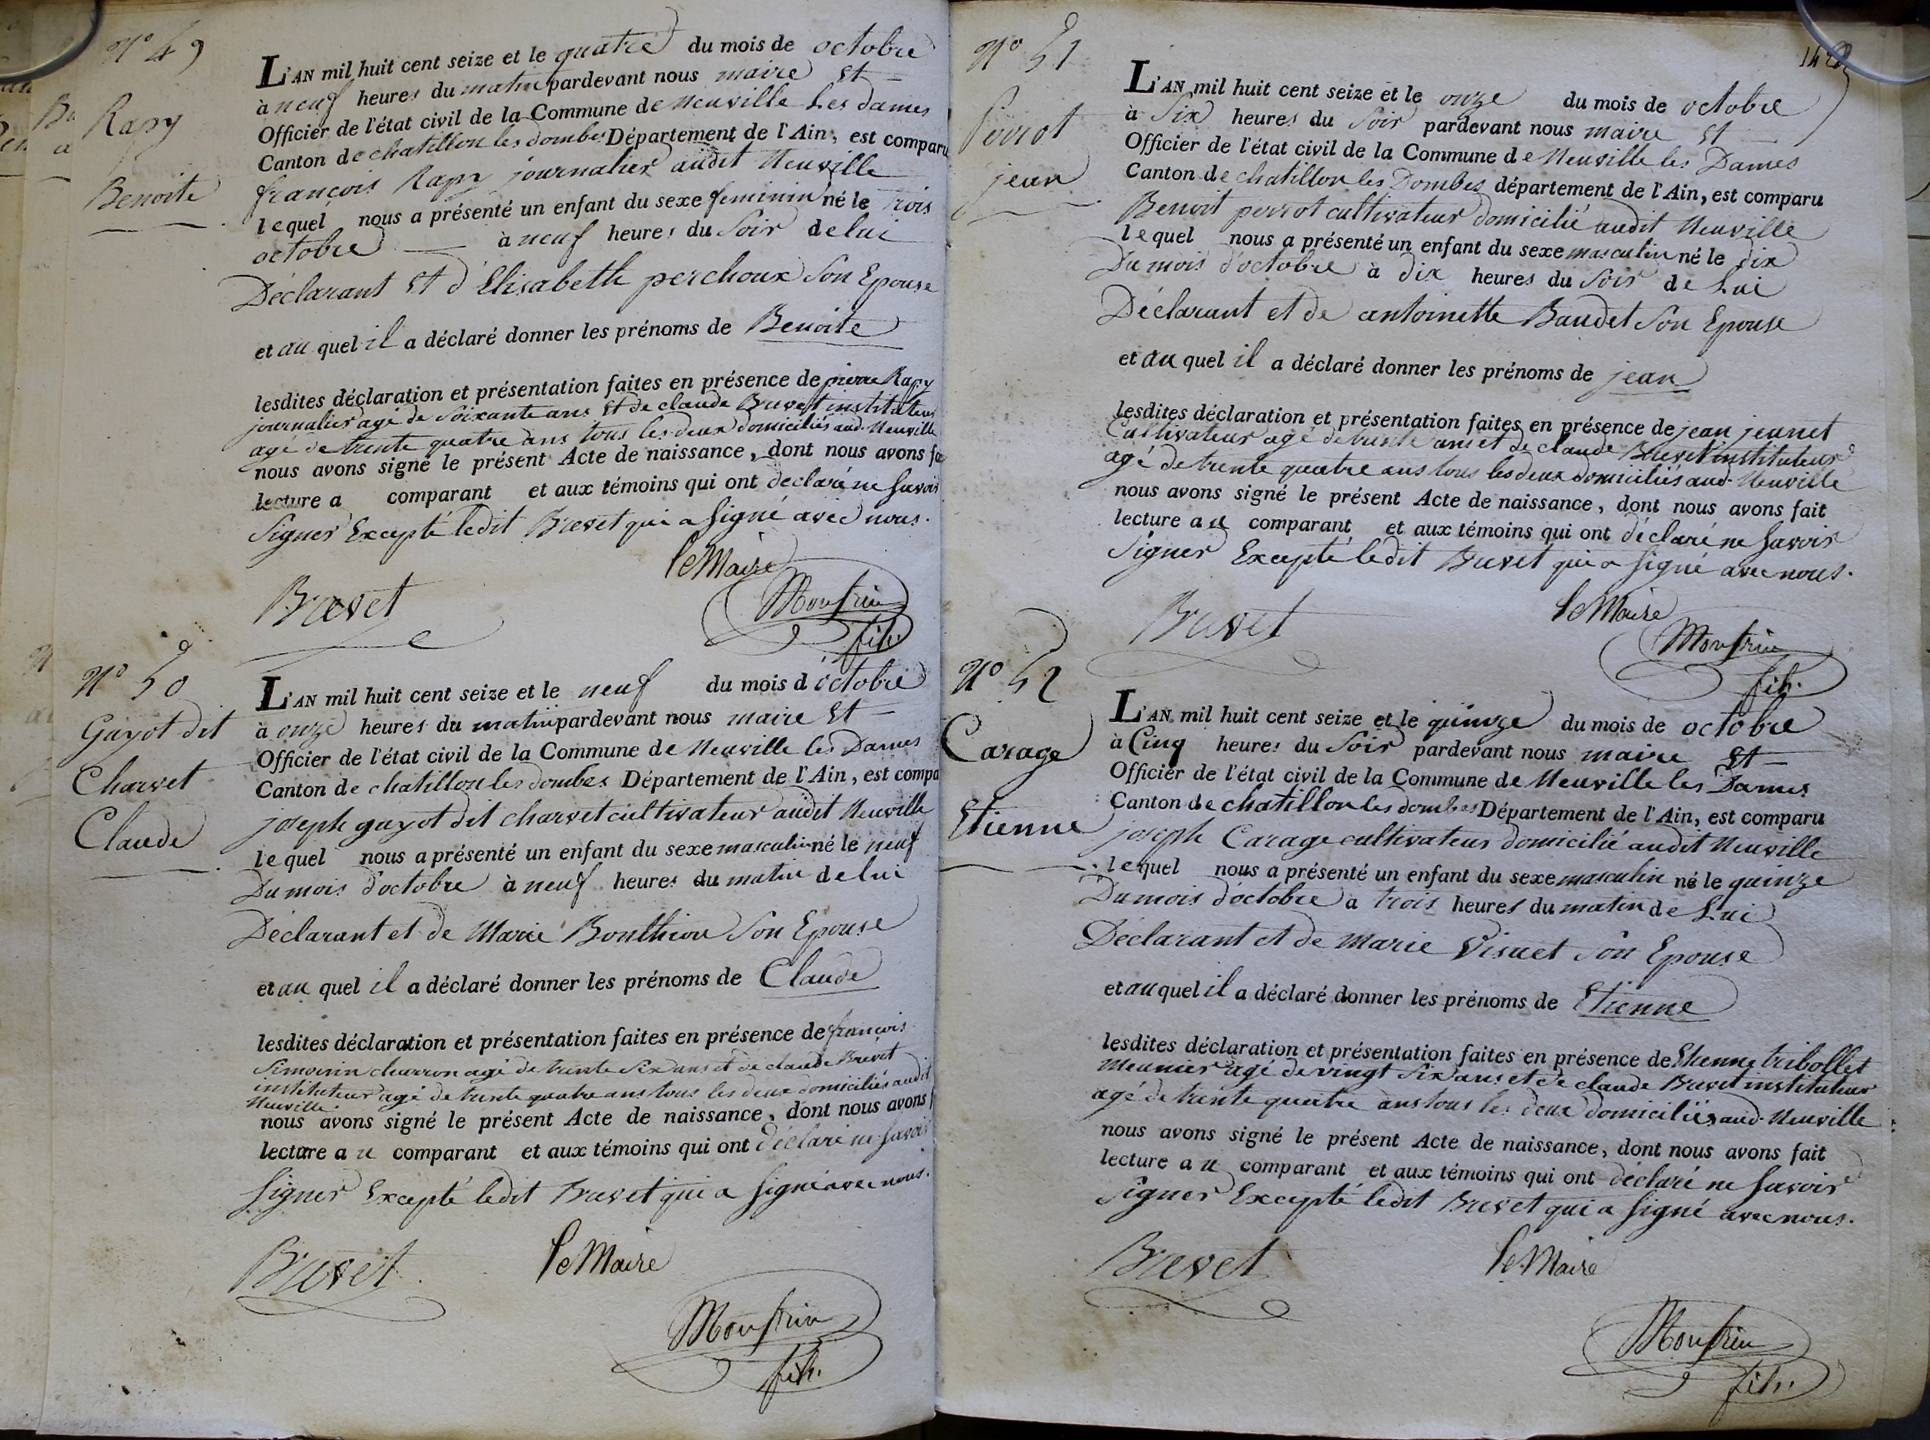 N° 49
Rapy
Benoite
L'AN mil huit cent seize et le quatre du mois de octobre
à neuf heures du matin pardevant nous maire Et
Officier de l'état civil de la Commune de Neuville Les dames
Canton de chatillon les dombes Département de l'Ain, est comparu
françois Rapy journalier audit Neuville
lequel nous a présenté un enfant du sexe feminin né le trois
octobre à neuf heures du Soir de lui
Déclarant Et d'Elisabeth perchoux Son Epouse
et au quel il a déclaré donner les prénoms de Benoite
lesdites déclaration et présentation faites en présence de pierre Rapy
journalier agé de Soixante ans Et de claude Brevet instituteur
agé de trente quatre ans tous les deux domiciliés aud. Neuville
nous avons signé le présent Acte de naissance, dont nous avons fa
lecture a comparant et aux témoins qui ont déclaré ne Savoir
Signer Excepté ledit Brevet qui a Signé avec nous.
le Maire
Brevet
Monfrin
fils.
N° 50
Guyot dit
Charvet
Claude
L'AN mil huit cent seize et le neuf du mois d'octobre
à onze heures du matin pardevant nous maire Et
Officier de l'état civil de la Commune de Neuville les Dames
Canton de chatillon les dombes Département de l'Ain, est compa
joseph guyot dit charvet cultivateur audit Neuville
lequel nous a présenté un enfant du sexe masculin né le neuf
Du mois d'octobre à neuf heures du matin de lui
Déclarant et de Marie Bonthiou Son Epouse
et au quel il a déclaré donner les prénoms de Claude
lesdites déclaration et présentation faites en présence de françois
Simonin charron agé de trente Six ans et de claude Brevet
instituteur agé de trente quatre ans tous les deux domiciliés audit
Neuville
nous avons signé le présent Acte de naissance, dont nous avons f
lecture a u comparant et aux témoins qui ont déclaré ne Savoir
Signer Excepté ledit Brevet qui a Signé avec nous.
Brevet
le Maire
Monfrin
fils.
N° 51
Perrot
jean
L'AN mil huit cent seize et le onze du mois de octobre
à Six heures du Soir pardevant nous maire Et
Officier de l'état civil de la Commune de Neuville les Dames
Canton de chatillon les Dombes département de l'Ain, est comparu
Benoit perrot cultivateur domicilié audit Neuville
lequel nous a présenté un enfant du sexe masculin né le dix
Du mois d'octobre à dix heures du Soir de Lui
Déclarant et de antoinette Baudet Son Epouse
et au quel il a déclaré donner les prénoms de jean
lesdites déclaration et présentation faites en présence de jean jeunet
Cultivateur agé de trente ans et de claude Brevet instituteur
agé de trente quatre ans tous les deux domiciliés aud. Neuville
nous avons signé le présent Acte de naissance, dont nous avons fait
lecture a u comparant et aux témoins qui ont déclaré ne Savoir
Signer Excepté ledit Brevet qui a Signé avec nous.
Brevet
le Maire
Monfrin
fils.
N° 52
Carage
Etienne
L'AN mil huit cent seize et le quinze du mois de octobre
à Cinq heures du Soir pardevant nous maire Et
Officier de l'état civil de la Commune de Neuville les Dames
Canton de chatillon les dombes Département de l'Ain, est comparu
joseph Carage cultivateur domicilié audit Neuville
lequel nous a présenté un enfant du sexe masculin né le quinze
Du mois d'octobre à trois heures du matin de Lui
Déclarant et de marie Visuet Son Epouse
et au quel il a déclaré donner les prénoms de Etienne
lesdites déclaration et présentation faites en présence de Etienne tribollet
Meunier agé de vingt Six ans et de claude Brevet instituteur
agé de trente quatre ans tous les deux domiciliés aud. Neuville
nous avons signé le présent Acte de naissance, dont nous avons fait
lecture a u comparant et aux témoins qui ont déclaré ne Savoir
Signer Excepté ledit Brevet qui a Signé avec nous.
Brevet
le Maire
Monfrin
fils.